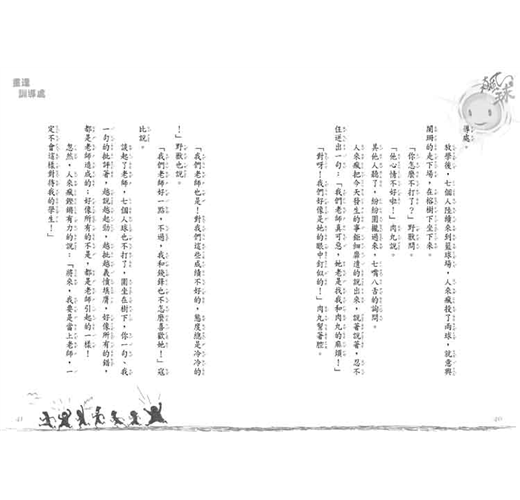 瘋球
導處。
放學後，七個人陸續來到籃球場，人來瘋投了兩球，就意興
闌珊的走下場，在榕樹下坐下來。
「你怎麼不打了？」野獸問。
「他心情不好啦！」肉丸說。
其他人聽了，紛紛圍攏過來，七嘴八舌的詢問。
人來瘋把今天發生的事鉅細靡遺的說出來，說著說著，忍不
住迸出一句：「我們老師真可惡，她老是找我和肉丸的麻煩！」
「對呀！我們好像是她的眼中釘似的！」肉丸幫著腔。
40
畫達
訓導處
「我們老師也是！對我們這些成績不好的，態度總是冷冷的
！」野獸也說。
「我們老師好一點，不過，我和錢鋒也不怎麼喜歡她！」寇
比說。
談起了老師，七個人球也不打了，圍坐在樹下，你一句、我
一句的批評著，越說越起勁，越批越義憤填膺，好像所有的錯，
都是老師造成的；好像所有的不是，都是老師引起的一樣！
忽然，人來瘋鏗鏘有力的說：「將來，我要是當上老師，一
定不會這樣對待我的學生！」
41